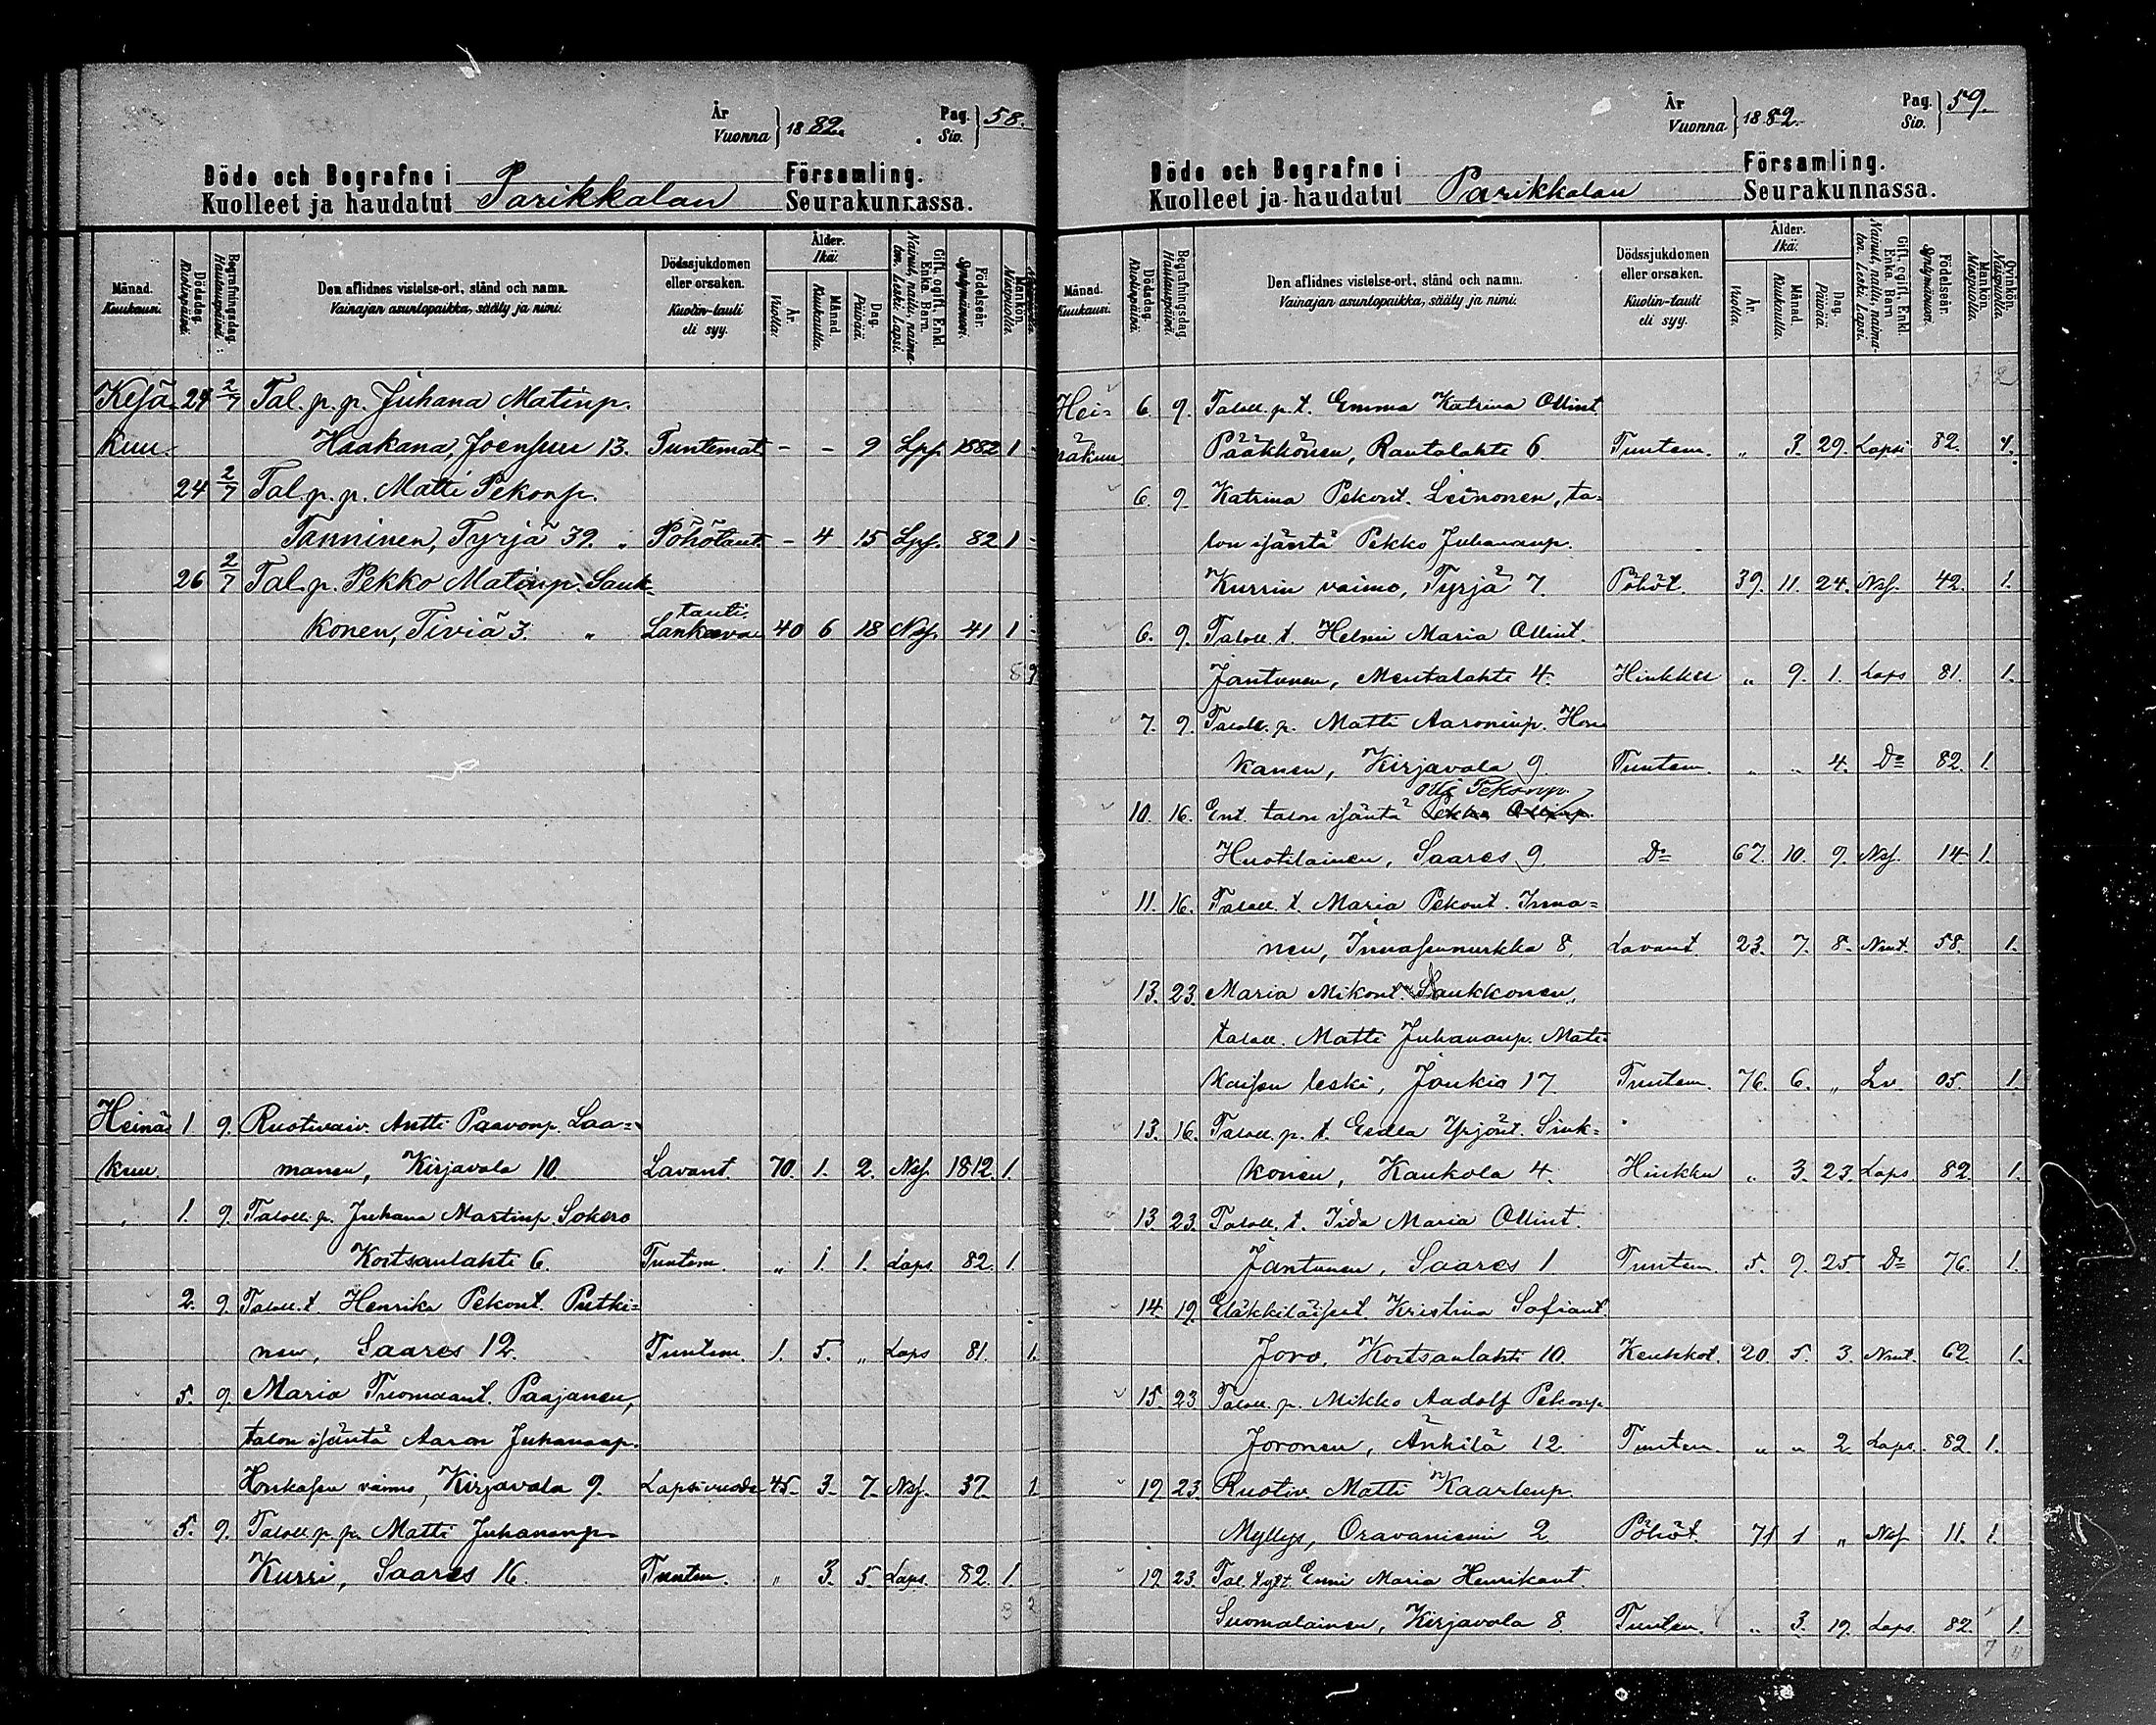 År
Vuonna } 1882. Pag. Siv. } 58.
Döde och Begrafne i Församling.
Kuolleet ja haudatut Parikkalan Seurakunnassa.
Månad. Kuukausi. Dödsdag. Kuolinpäivä. Begrafningsdag. Hautauspäivä. Den aflidnes vistelse-ort, stånd och namn. Vainajan asuntopaikka, sääty ja nimi. Dödssjukdomen eller orsaken. Kuolin-tauti eli syy. Ålder. Ikä. År. Vuotta. Månad. Kuukautta. Dag. Päivää. Gift, ogift, Enkl. Enka, Barn. Nainut, nailu, naimaton, Leski, Lapsi. Födelseår. Syntymävuosi. Mankön. Miespuolia.
Kesä- 24 2/7 Tal. p. p. Juhana Matinp.
kuu Haakana, Joensuu 13. Tuntemat - - 9 Lps. 1882 1 -
24 2/7 Tal. p. p. Matti Pekonp.
Tanninen, Tyrjä 39. Pöhötaut. - 4 15 Lps. 82 1 -
26 2/7 Tal. p. Pekko Matinp. Sauk-
tauti
konen, Tiviä 3. " Lankeava 40 6 18 Ns. 41 1 -
8 9
Heinä- 1. 9. Ruotivaiv. Antti Paavonp. Laa=
kuu. manen, Kirjavala 10. Lavant. 70. 1. 2. Ns. 1812. 1.
1. 9. Taloll. p. Juhana Martinp. Sokero
Koitsanlahti 6. Tuntem. " 1. 1. Laps 82. 1.
2. 9. Taloll. t. Henrika Pekont. Putki=
nen, Saares 12. Tuntem. 1. 5. " Laps 81. 1.
5. 9. Maria Tuomaant. Paajanen,
talon isäntä Aaron Juhananp.
Honkasen vaimo, Kirjavala 9. Lapsivuode 45. 3. 7. Ns. 37. 1
5. 9. Taloll. p. p. Matti Juhananp.
Kurri, Saares 16. Tuntem. " 3. 5. Laps. 82. 1.
3 2
År
Vuonna } 1882. Pag. Siv. } 59.
Döde och Begrafne i Församling.
Kuolleet ja haudatut Parikkalan Seurakunnassa.
Månad. Kuukausi. Dödsdag. Kuolinpäivä. Begrafningsdag. Hautauspäivä. Den aflidnes vistelse-ort, stånd och namn. Vainajan asuntopaikka, sääty ja nimi. Dödssjukdomen eller orsaken. Kuolin-tauti eli syy. Ålder. Ikä. År. Vuotta. Månad. Kuukautta. Dag. Päivää. Gift, ogift, Enkl. Enka, Barn. Nainut, nailu, naimaton, Leski, Lapsi. Födelseår. Syntymävuosi. Mankön. Miespuolia. Qvinkön. Naispuolia.
3 2
Hei= 6. 9. Taloll. p. t. Emma Katrina Ollint
näkuu Pääkkönen, Rautalahti 6 Tuntem. " 3. 29. Lapsi 82. 1.
6. 9. Katrina Pekont. Leinonen, ta=
lon isäntä Pekko Juhananp.
Kurrin vaimo, Tyrjä 7. Pöhöt. 39. 11. 24. Ns. 42. 1.
6. 9. Taloll. t. Helmi Maria Ollint.
Jantunen, Mentalahti 4. Hinkku " 9. 1. Laps 81. 1.
7. 9. Taloll. p. Matti Aaroninp. Hon
kanen, Kirjavala 9. Tuntem. " " 4. Do 82. 1.
Olli Pekonp.
10. 16. Ent. talon isäntä Pekko Ollinp.
Huotilainen, Saares 9. Do 67. 10. 9. Ns. 14. 1.
11. 16. Taloll. t. Maria Pekont. Inna=
nen, Innasennurkka 8. Lavant. 23. 7. 8. Nmt. 58. 1.
13. 23. Maria Mikont. Saukkonen,
taloll. Matti Juhananp. Mati=
kaisen leski, Joukio 17 Tuntem. 76. 6. " Lv 05. 1.
13. 16. Taloll. p. t. Eedla Yrjönt. Sink=
konen, Kaukola 4. Hinkku " 3. 23. Laps. 82. 1.
13. 23. Taloll. t. Iida Maria Ollint.
Jantunen, Saares 1 Tuntem. 5. 9. 25. Do 76. 1.
14. 19. Eläkkiläisent. Kristina Sofiant.
Joro, Koitsanlahti 10. Keuhkot. 20. 5. 3. Nmt. 62. 1.
15. 23 Taloll. p. Mikko Aadolf Pekonp
Joronen, Änkilä 12. Tuntem. " " 2. Laps. 82. 1.
19. 23. Ruotiv. Matti Kaarlenp.
Myllys, Oravaniemi 2 Pöhöt. 71 1 " Ns. 11. 1.
19. 23. Tal. tytt. Enni Maria Henrikant.
Suomalainen, Kirjavala 8. Tuntem. " 3. 19. Laps. 82. 1.
7 11